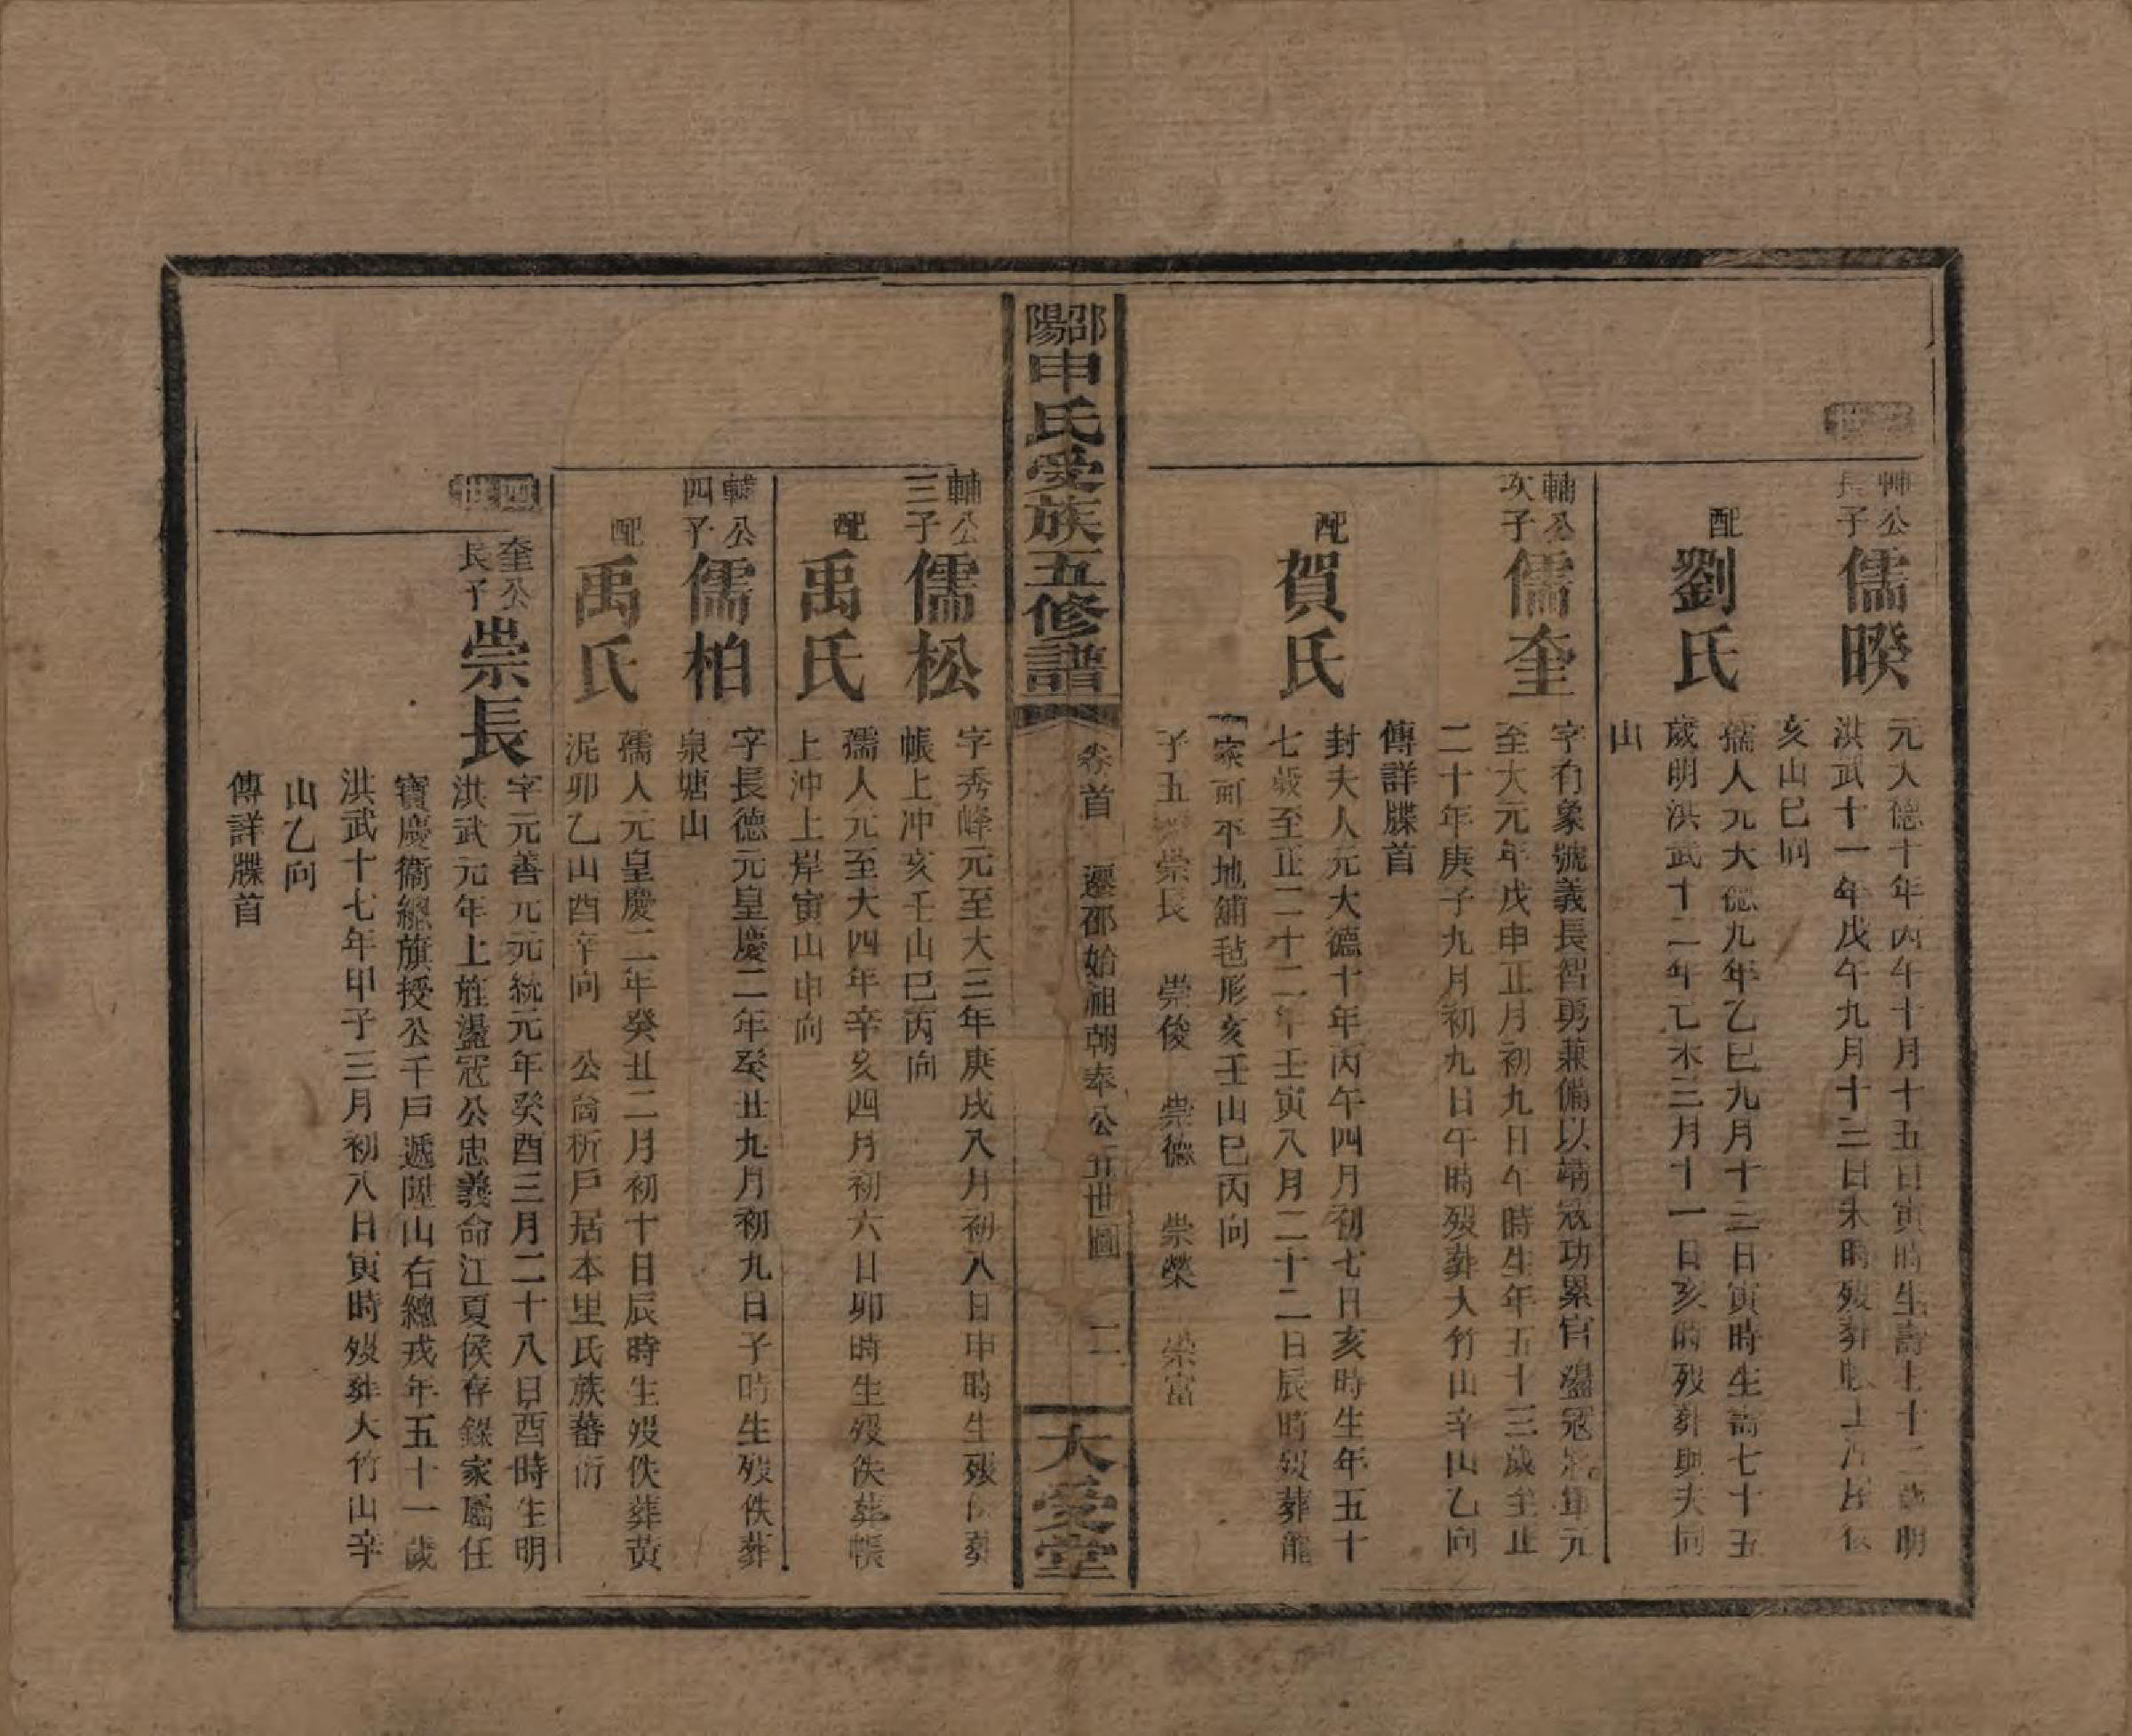 輔公
長子
儒暌
元大德十年丙午十月十五日寅時生壽七十三歲明
洪武十一年戊午九月十三日未時歿葬
亥山巳向
配
劉氏
孺人元大德九年乙巳九月十三日寅時生壽七十五
歲明洪武十二年己未三月十一日亥時歿葬與夫同
山
輔公
次子
儒奎
字有象號義長智勇兼備以靖寇功累官盪寇將軍元
至大元年戊申正月初九日午時生年五十三歲至正
二十年庚子九月初九日午時歿葬大竹山辛山乙向
傳詳牒首
配
賀氏
封夫人元大德十年丙午四月初七日亥時生年五十
七歲至正二十二年壬寅八月二十二日辰時歿葬龍
家町平地舖毡形亥壬山巳丙向
子五 崇長 崇俊 崇德 崇榮 崇富
邵陽申氏受族五修譜
卷首 遷邵始祖朝奉公五世圖 二
大受堂
輔公
三子
儒松
字秀峰元至大三年庚戌八月初八日申時生歿佚葬
帳上冲亥壬山巳丙向
配
禹氏
孺人元至大四年辛亥四月初六日卯時生歿佚葬帳
上冲上岸寅山申向
輔公
四子
儒柏
字長德元皇慶二年癸丑九月初九日子時生歿佚葬
泉塘山
配
禹氏
孺人元皇慶二年癸丑二月初十日辰時生歿佚葬黃
泥卯乙山酉辛向 公啇析戶居本里氏族蕃衍
四世
奎公
長子
崇長
字元善元元統元年癸酉三月二十八日酉時生明
洪武元年上旌盪寇公忠義命江夏侯存錄家屬任
寶慶衞總旗授公千戶遞陞山右總戎年五十一歲
洪武十七年甲子三月初八日寅時歿葬大竹山辛
山乙向
傳詳牒首